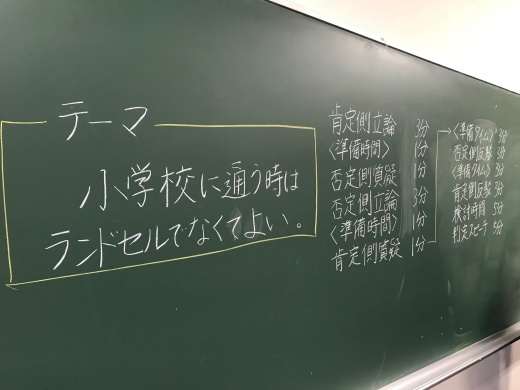 テーマ
小学校に通う時は
ランドセルでなくてよい。
肯定側立論 3分
〈準備時間〉 1分
否定側質疑 1分
否定側立論 3分
〈準備時間〉 1分
肯定側質疑 1分
〈準備タイム〉 3分
否定側反駁 3分
〈準備タイム〉 3分
肯定側反駁 3分
検討時間 5分
判定スピーチ 5分